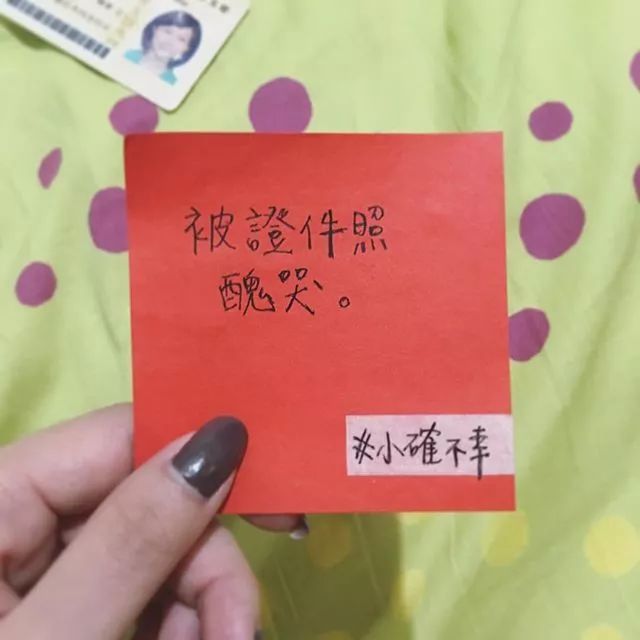 被證件照
醜哭。
#小確不幸